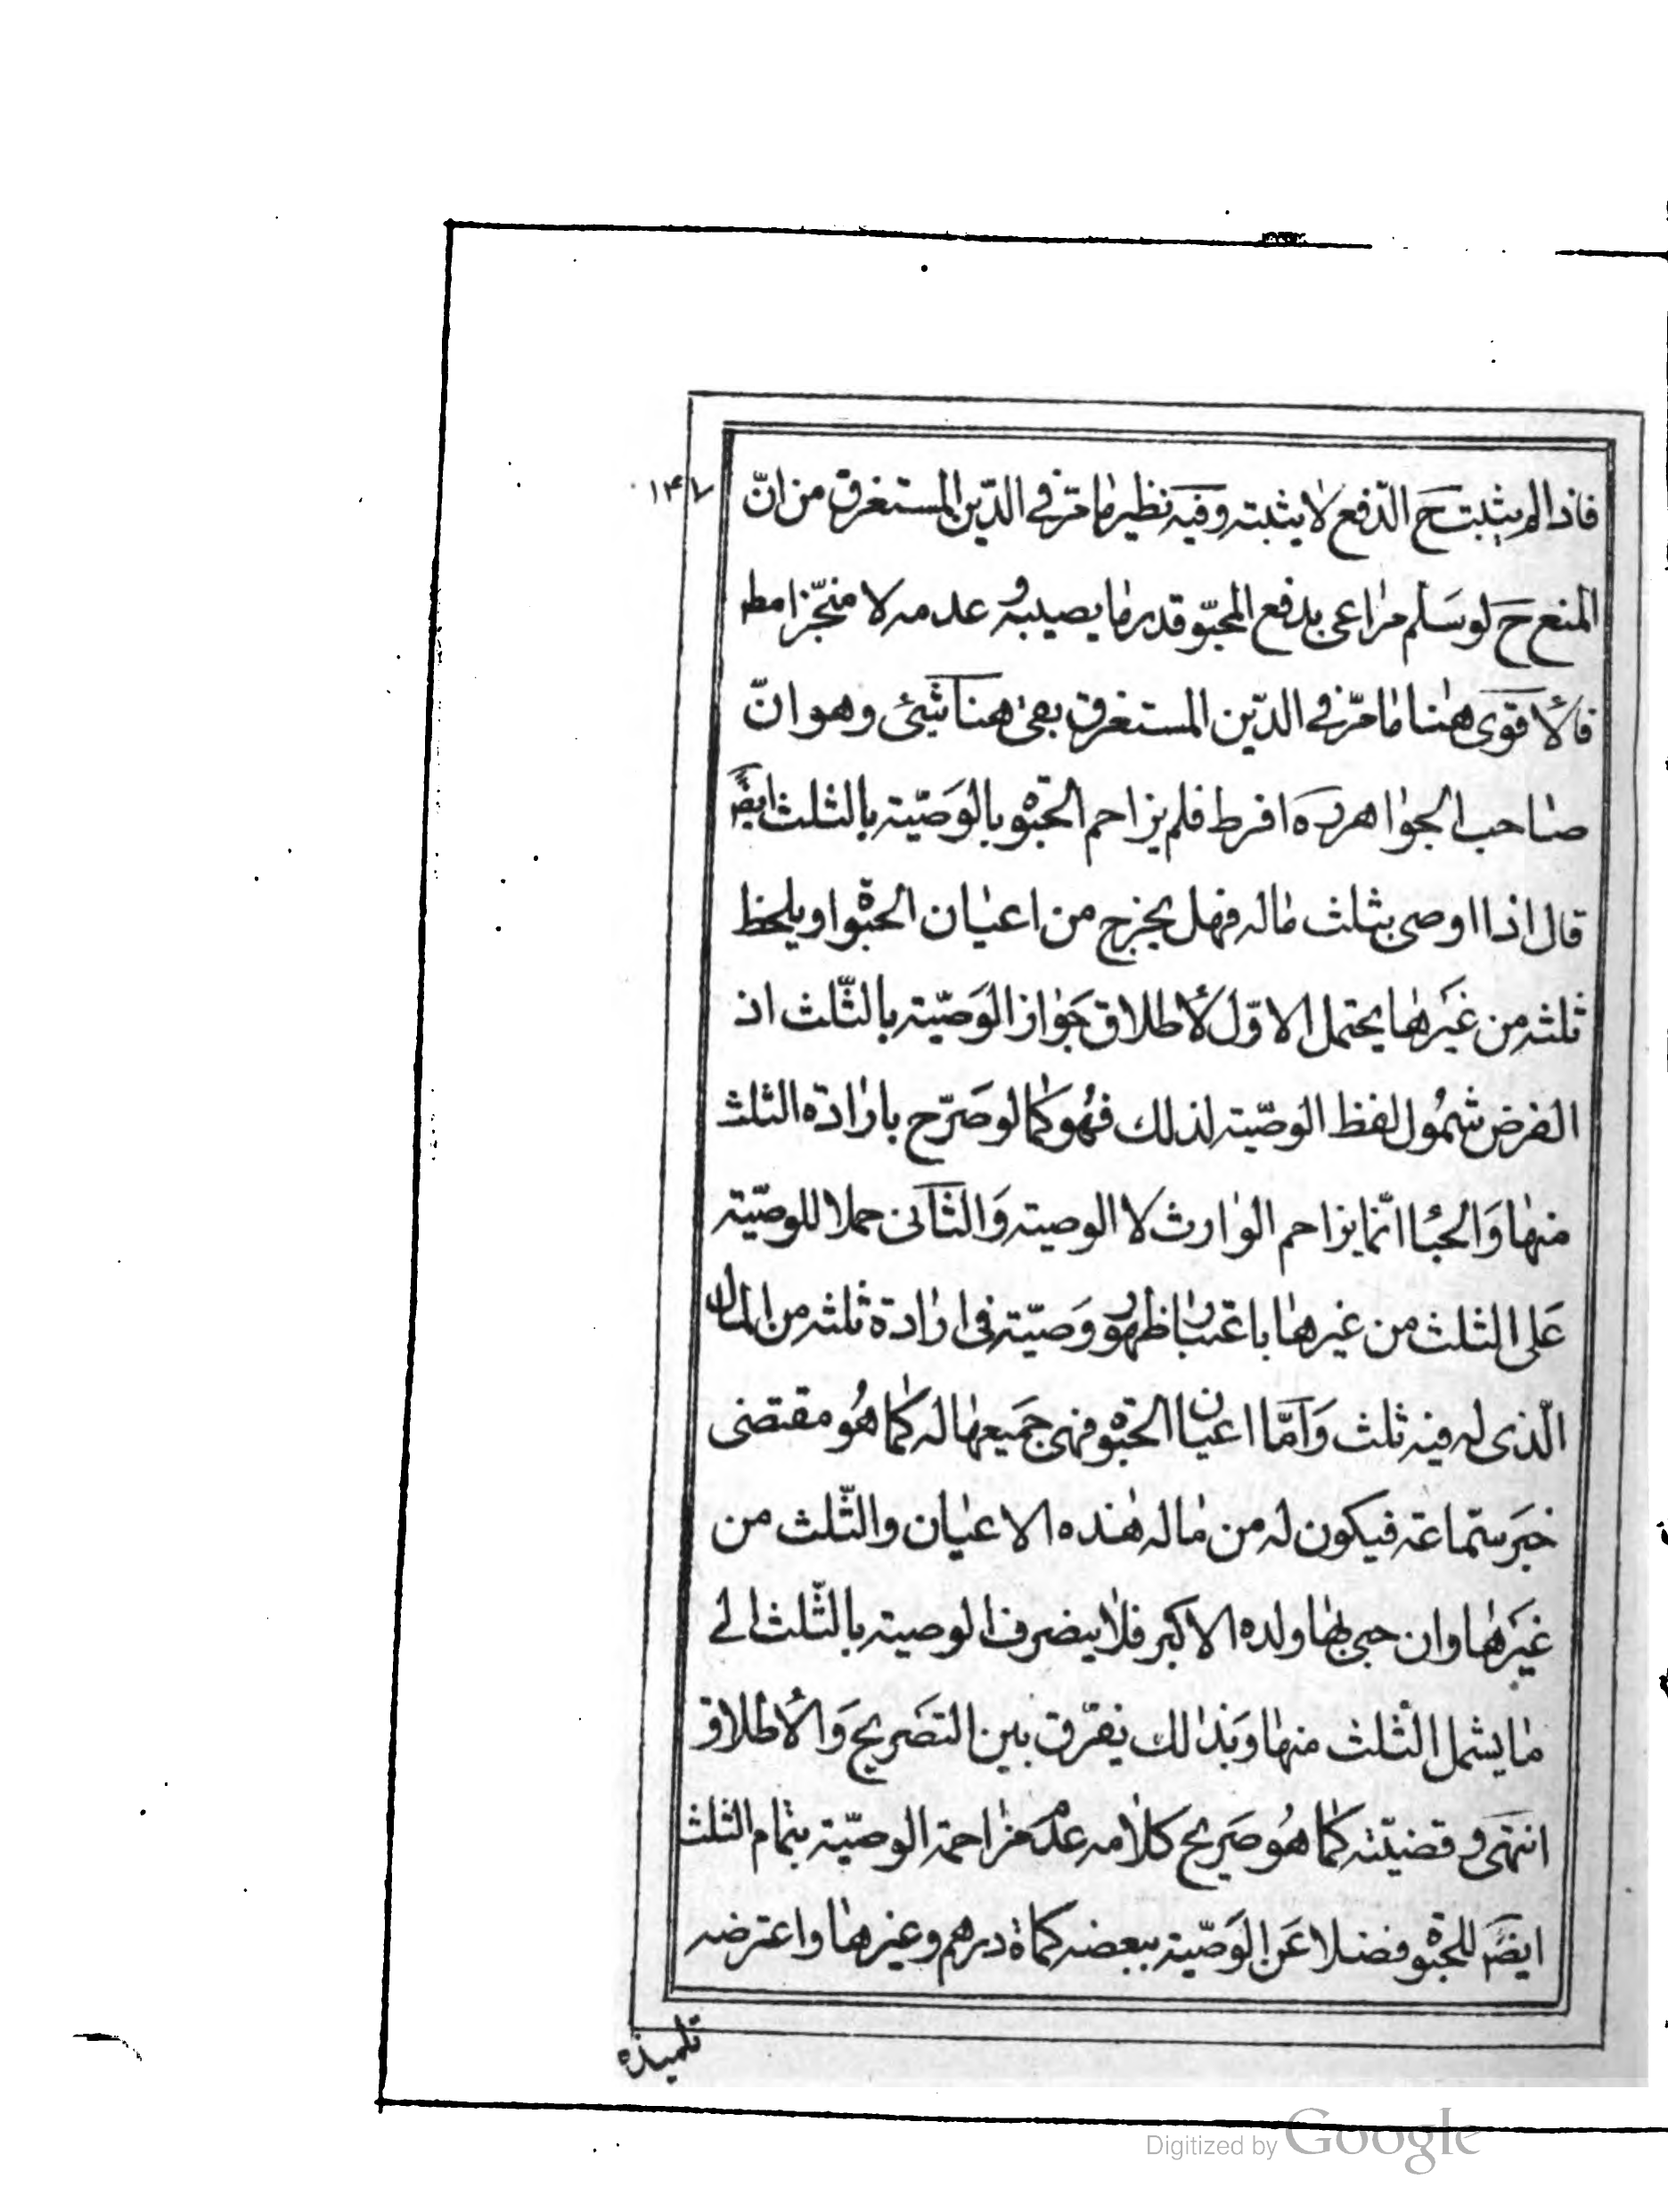 ۱۴۷
فاذا لم يثبت ح الدّفع لا يثبته وفيه نظير ما مرّ في الدّين المستغرق من انّ
المنع ح لو سلّم مراعى بدفع المحبّو قدر ما يصيبه و عدمه لا منجّزا مط
فالأقوى هنا ما مرّ في الدّين المستغرق بقى هنا شيئ وهو انّ
صاحب الجواهر ره افرط فلم يزاحم الحبوة بالوصيّة بالثلث ايضً
قال اذا اوصى بثلث ماله فهل يخرج من اعيان الحبوة او يلحظ
ثلثه من غيرها يحتمل الاوّل لأطلاق جواز الوصيّة بالثّلث اذ
الفرض شمول لفظ الوصيّة لذلك فهو كما لو صرّح بارادة الثلث
منها والحبا انّما يزاحم الوارث لا الوصية والثانى حملا للوصيّة
على الثلث من غيرها باعتبار ظهور وصيّته فى ارادة ثلثه من المال
الّذى له فيه ثلث وامّا اعيان الحبوة فهى جميعها له كما هو مقتضى
خبر سماعة فيكون له من ماله هذه الاعيان والثّلث من
غيرها وان حبى بها ولده الاكبر فلا ينصرف الوصية بالثّلث الى
ما يشمل الثّلث منها وبذالك يفرّق بين التصريح والأطلاق
انتهى و قضيّته كما هو صريح كلامه عدم مزاحمة الوصيّة بتمام الثلث
ايضً للحبوة فضلا عن الوصيّة ببعضه كماة درهم وغيرها واعترضه
تلميذه
Digitized by Google